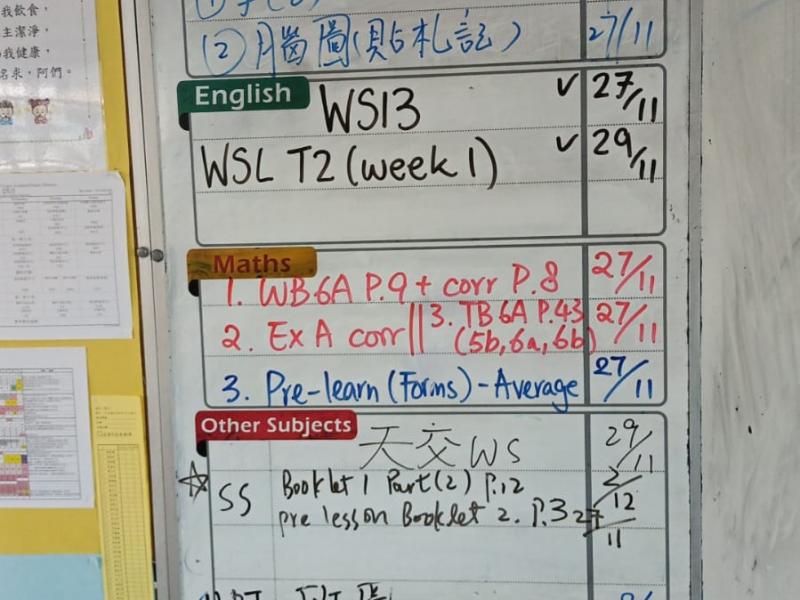 我飲食,
主潔淨,
我健康,
名求,阿們。
(2) 月齒圖(貼札記) 27/11
English
WS13 ✓ 27/11
WSL T2 (week 1) ✓ 29/11
Maths
1. WB6A P.9 + corr P.8 27/11
2. Ex A corr || 3. TB 6A P.43 (5b, 6a, 6b) 27/11
3. Pre-learn (Forms) - Average 27/11
Other Subjects
天交 WS 29/11
☆ SS Booklet 1 Part (2) P.12 2/12
pre lesson Booklet 2. P.3 27/11